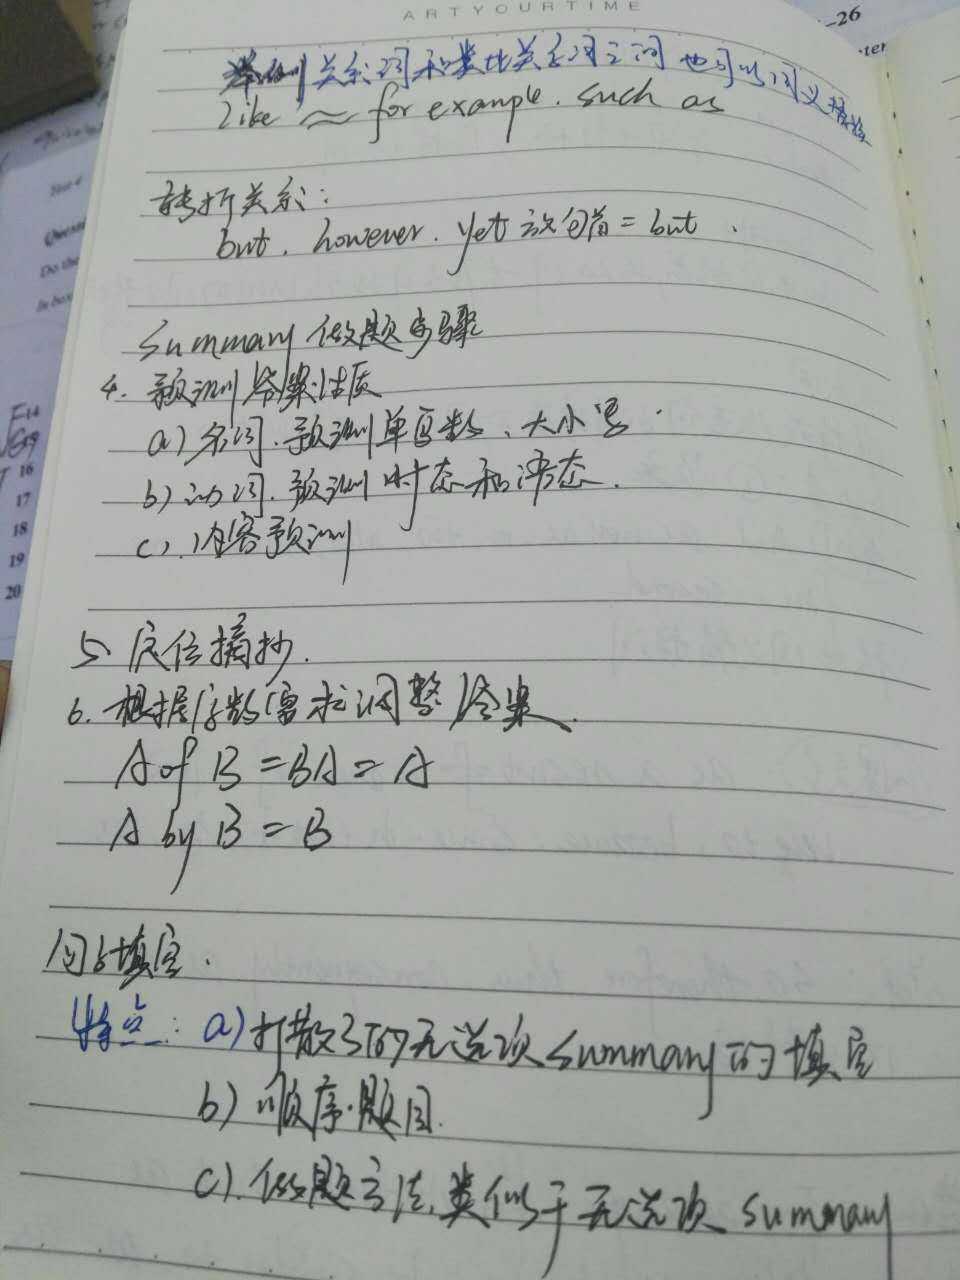 ARTYOURTIME
-26
举例关系词和类比关系词之间也可以同义替换
like ≈ for example. such as
转折关系:
but. however. yet 放句首 = but.
Summary 做题步骤
4. 预测答案性质
a) 名词. 预测单复数、大小写.
b) 动词. 预测时态和语态.
c). 内容预测
5. 定位摘抄.
6. 根据字数需求调整答案.
A of B = BA = A
A by B = B
句子填空.
特点: a) 打散了的无选项 summary 的填空
b) 顺序题目.
c). 做题方法, 类似于无选项 summary
Test 4
Do the
In box
14
16
17
18
19
20